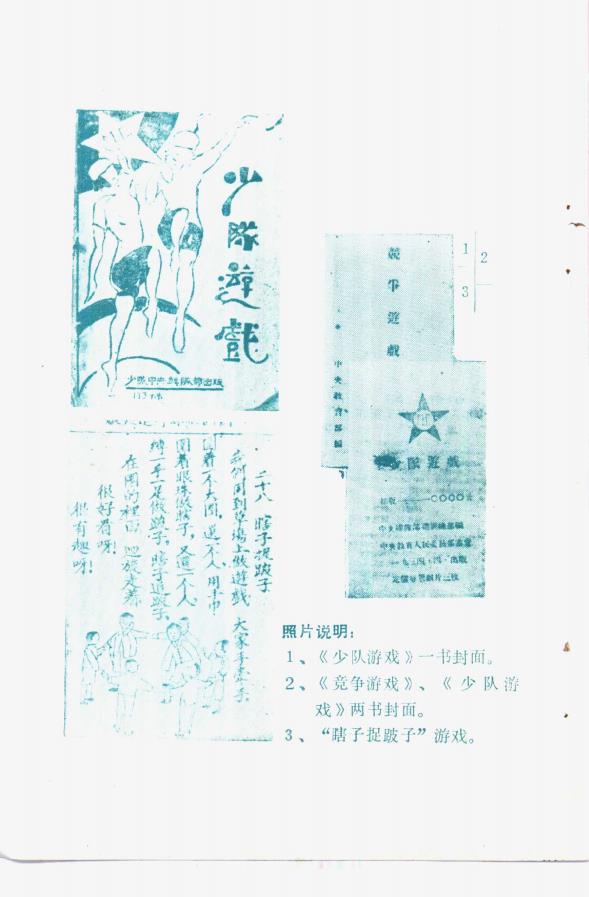 少隊遊戲
少隊中央總隊部出版
競爭遊戲
中央教育部編
隊遊戲
初版 一——○○○○
中央教育人民委員部審定
一九三四·四·出版
1
2
3
二十八 瞎子捉跛子
大家手牽手
圍着一个大圈,選一个人,用手巾
圍着眼珠做瞎子,又選一个人
縛一手一足做跛子。瞎子追跛子
在圈的裡面
很好看呀!
很有趣呀!
照片说明:
1、《少队游戏》一书封面。
2、《竞争游戏》、《少队游
戏》两书封面。
3、“瞎子捉跛子”游戏。